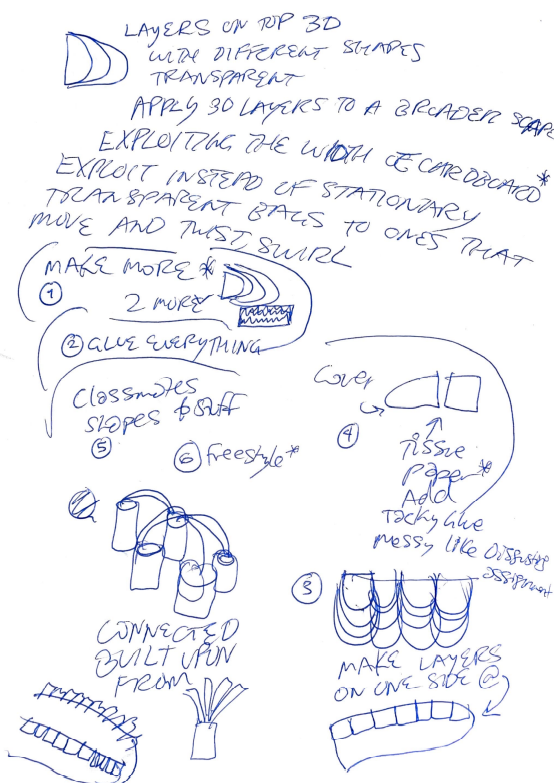 LAYERS ON TOP 3D
WITH DIFFERENT SHAPES
TRANSPARENT
APPLY 3D LAYERS TO A BROADER
EXPLOITING THE WIDTH OF CARDBOARD*
EXPLOIT INSTEAD OF STATIONARY
TRANSPARENT BAGS TO ONES THAT
MOVE AND TWIST, SWIRL
MAKE MORE *
①
2 MORE
② GLUE EVERYTHING
Classmates
slopes & stuff
⑤
⑥ freestyle*
Cover
④
Tissue
paper*
Add
Tacky like
messy like Disgusting
assignment
③
CONNECTED
BUILT UPON
FROM
MAKE LAYERS
ON ONE SIDE @